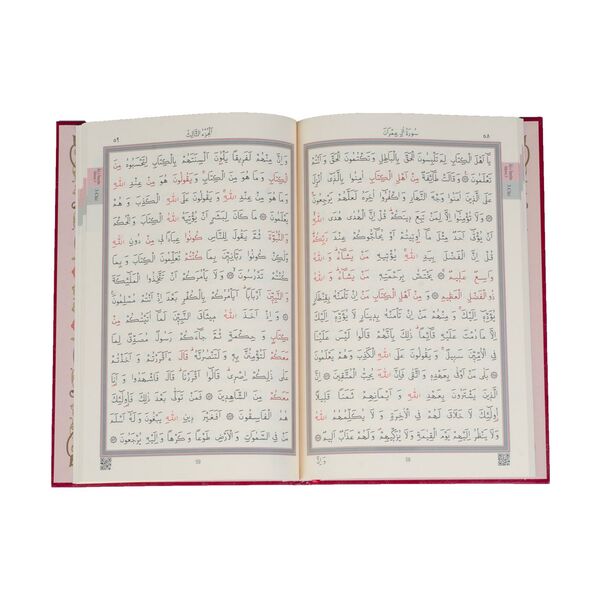 سُورَةُ اٰلِ عِمْرٰنَ
٥٨
يَا اَهْلَ الْكِتَابِ لِمَ تَلْبِسُونَ الْحَقَّ بِالْبَاطِلِ وَتَكْتُمُونَ الْحَقَّ وَاَنْتُمْ
تَعْلَمُونَ وَقَالَتْ طَائِفَةٌ مِنْ اَهْلِ الْكِتَابِ اٰمِنُوا بِالَّذِي اُنْزِلَ
عَلَى الَّذِينَ اٰمَنُوا وَجْهَ النَّهَارِ وَاكْفُرُوا اٰخِرَهُ لَعَلَّهُمْ يَرْجِعُونَ
وَلَا تُؤْمِنُوا اِلَّا لِمَنْ تَبِعَ دِينَكُمْ قُلْ اِنَّ الْهُدٰى هُدَى اللّٰهِ
اَنْ يُؤْتٰى اَحَدٌ مِثْلَ مَا اُوتِيتُمْ اَوْ يُحَاجُّوكُمْ عِنْدَ رَبِّكُمْ
قُلْ اِنَّ الْفَضْلَ بِيَدِ اللّٰهِ يُؤْتِيهِ مَنْ يَشَاءُ وَاللّٰهُ
وَاسِعٌ عَلِيمٌ يَخْتَصُّ بِرَحْمَتِهِ مَنْ يَشَاءُ وَاللّٰهُ
ذُو الْفَضْلِ الْعَظِيمِ وَمِنْ اَهْلِ الْكِتَابِ مَنْ اِنْ تَأْمَنْهُ بِقِنْطَارٍ
يُؤَدِّهِ اِلَيْكَ وَمِنْهُمْ مَنْ اِنْ تَأْمَنْهُ بِدِينَارٍ لَا يُؤَدِّهِ اِلَيْكَ
اِلَّا مَا دُمْتَ عَلَيْهِ قَائِمًا ذٰلِكَ بِاَنَّهُمْ قَالُوا لَيْسَ عَلَيْنَا
فِي الْاُمِّيِّنَ سَبِيلٌ وَيَقُولُونَ عَلَى اللّٰهِ الْكَذِبَ وَهُمْ يَعْلَمُونَ
بَلٰى مَنْ اَوْفٰى بِعَهْدِهِ وَاتَّقٰى فَاِنَّ اللّٰهَ يُحِبُّ الْمُتَّقِينَ اِنَّ
الَّذِينَ يَشْتَرُونَ بِعَهْدِ اللّٰهِ وَاَيْمَانِهِمْ ثَمَنًا قَلِيلًا
اُولٰئِكَ لَا خَلَاقَ لَهُمْ فِي الْاٰخِرَةِ وَلَا يُكَلِّمُهُمُ اللّٰهُ
وَلَا يَنْظُرُ اِلَيْهِمْ يَوْمَ الْقِيٰمَةِ وَلَا يُزَكِّيهِمْ وَلَهُمْ عَذَابٌ اَلِيمٌ
وَاِنَّ
58
اَلْجُزْءُ الثَّالِثُ
٥٩
وَاِنَّ مِنْهُمْ لَفَرِيقًا يَلْوُنَ اَلْسِنَتَهُمْ بِالْكِتَابِ لِتَحْسَبُوهُ مِنَ
الْكِتَابِ وَمَا هُوَ مِنَ الْكِتَابِ وَيَقُولُونَ هُوَ مِنْ عِنْدِ اللّٰهِ
وَمَا هُوَ مِنْ عِنْدِ اللّٰهِ وَيَقُولُونَ عَلَى اللّٰهِ الْكَذِبَ وَهُمْ
يَعْلَمُونَ مَا كَانَ لِبَشَرٍ اَنْ يُؤْتِيَهُ اللّٰهُ الْكِتَابَ وَالْحُكْمَ
وَالنُّبُوَّةَ ثُمَّ يَقُولَ لِلنَّاسِ كُونُوا عِبَادًا لِي مِنْ دُونِ اللّٰهِ
وَلٰكِنْ كُونُوا رَبَّانِيِّنَ بِمَا كُنْتُمْ تُعَلِّمُونَ الْكِتَابَ وَبِمَا
كُنْتُمْ تَدْرُسُونَ وَلَا يَأْمُرَكُمْ اَنْ تَتَّخِذُوا الْمَلٰئِكَةَ
وَالنَّبِيِّنَ اَرْبَابًا اَيَأْمُرُكُمْ بِالْكُفْرِ بَعْدَ اِذْ اَنْتُمْ مُسْلِمُونَ
وَاِذْ اَخَذَ اللّٰهُ مِيثَاقَ النَّبِيِّنَ لَمَا اٰتَيْتُكُمْ مِنْ
كِتَابٍ وَحِكْمَةٍ ثُمَّ جَاءَكُمْ رَسُولٌ مُصَدِّقٌ لِمَا
مَعَكُمْ لَتُؤْمِنُنَّ بِهِ وَلَتَنْصُرُنَّهُ قَالَ ءَاَقْرَرْتُمْ وَاَخَذْتُمْ
عَلٰى ذٰلِكُمْ اِصْرِي قَالُوا اَقْرَرْنَا قَالَ فَاشْهَدُوا وَاَنَا
مَعَكُمْ مِنَ الشَّاهِدِينَ فَمَنْ تَوَلّٰى بَعْدَ ذٰلِكَ فَاُولٰئِكَ
هُمُ الْفَاسِقُونَ اَفَغَيْرَ دِينِ اللّٰهِ يَبْغُونَ وَلَهُ اَسْلَمَ
مَنْ فِي السَّمٰوَاتِ وَالْاَرْضِ طَوْعًا وَكَرْهًا وَاِلَيْهِ يُرْجَعُونَ
59